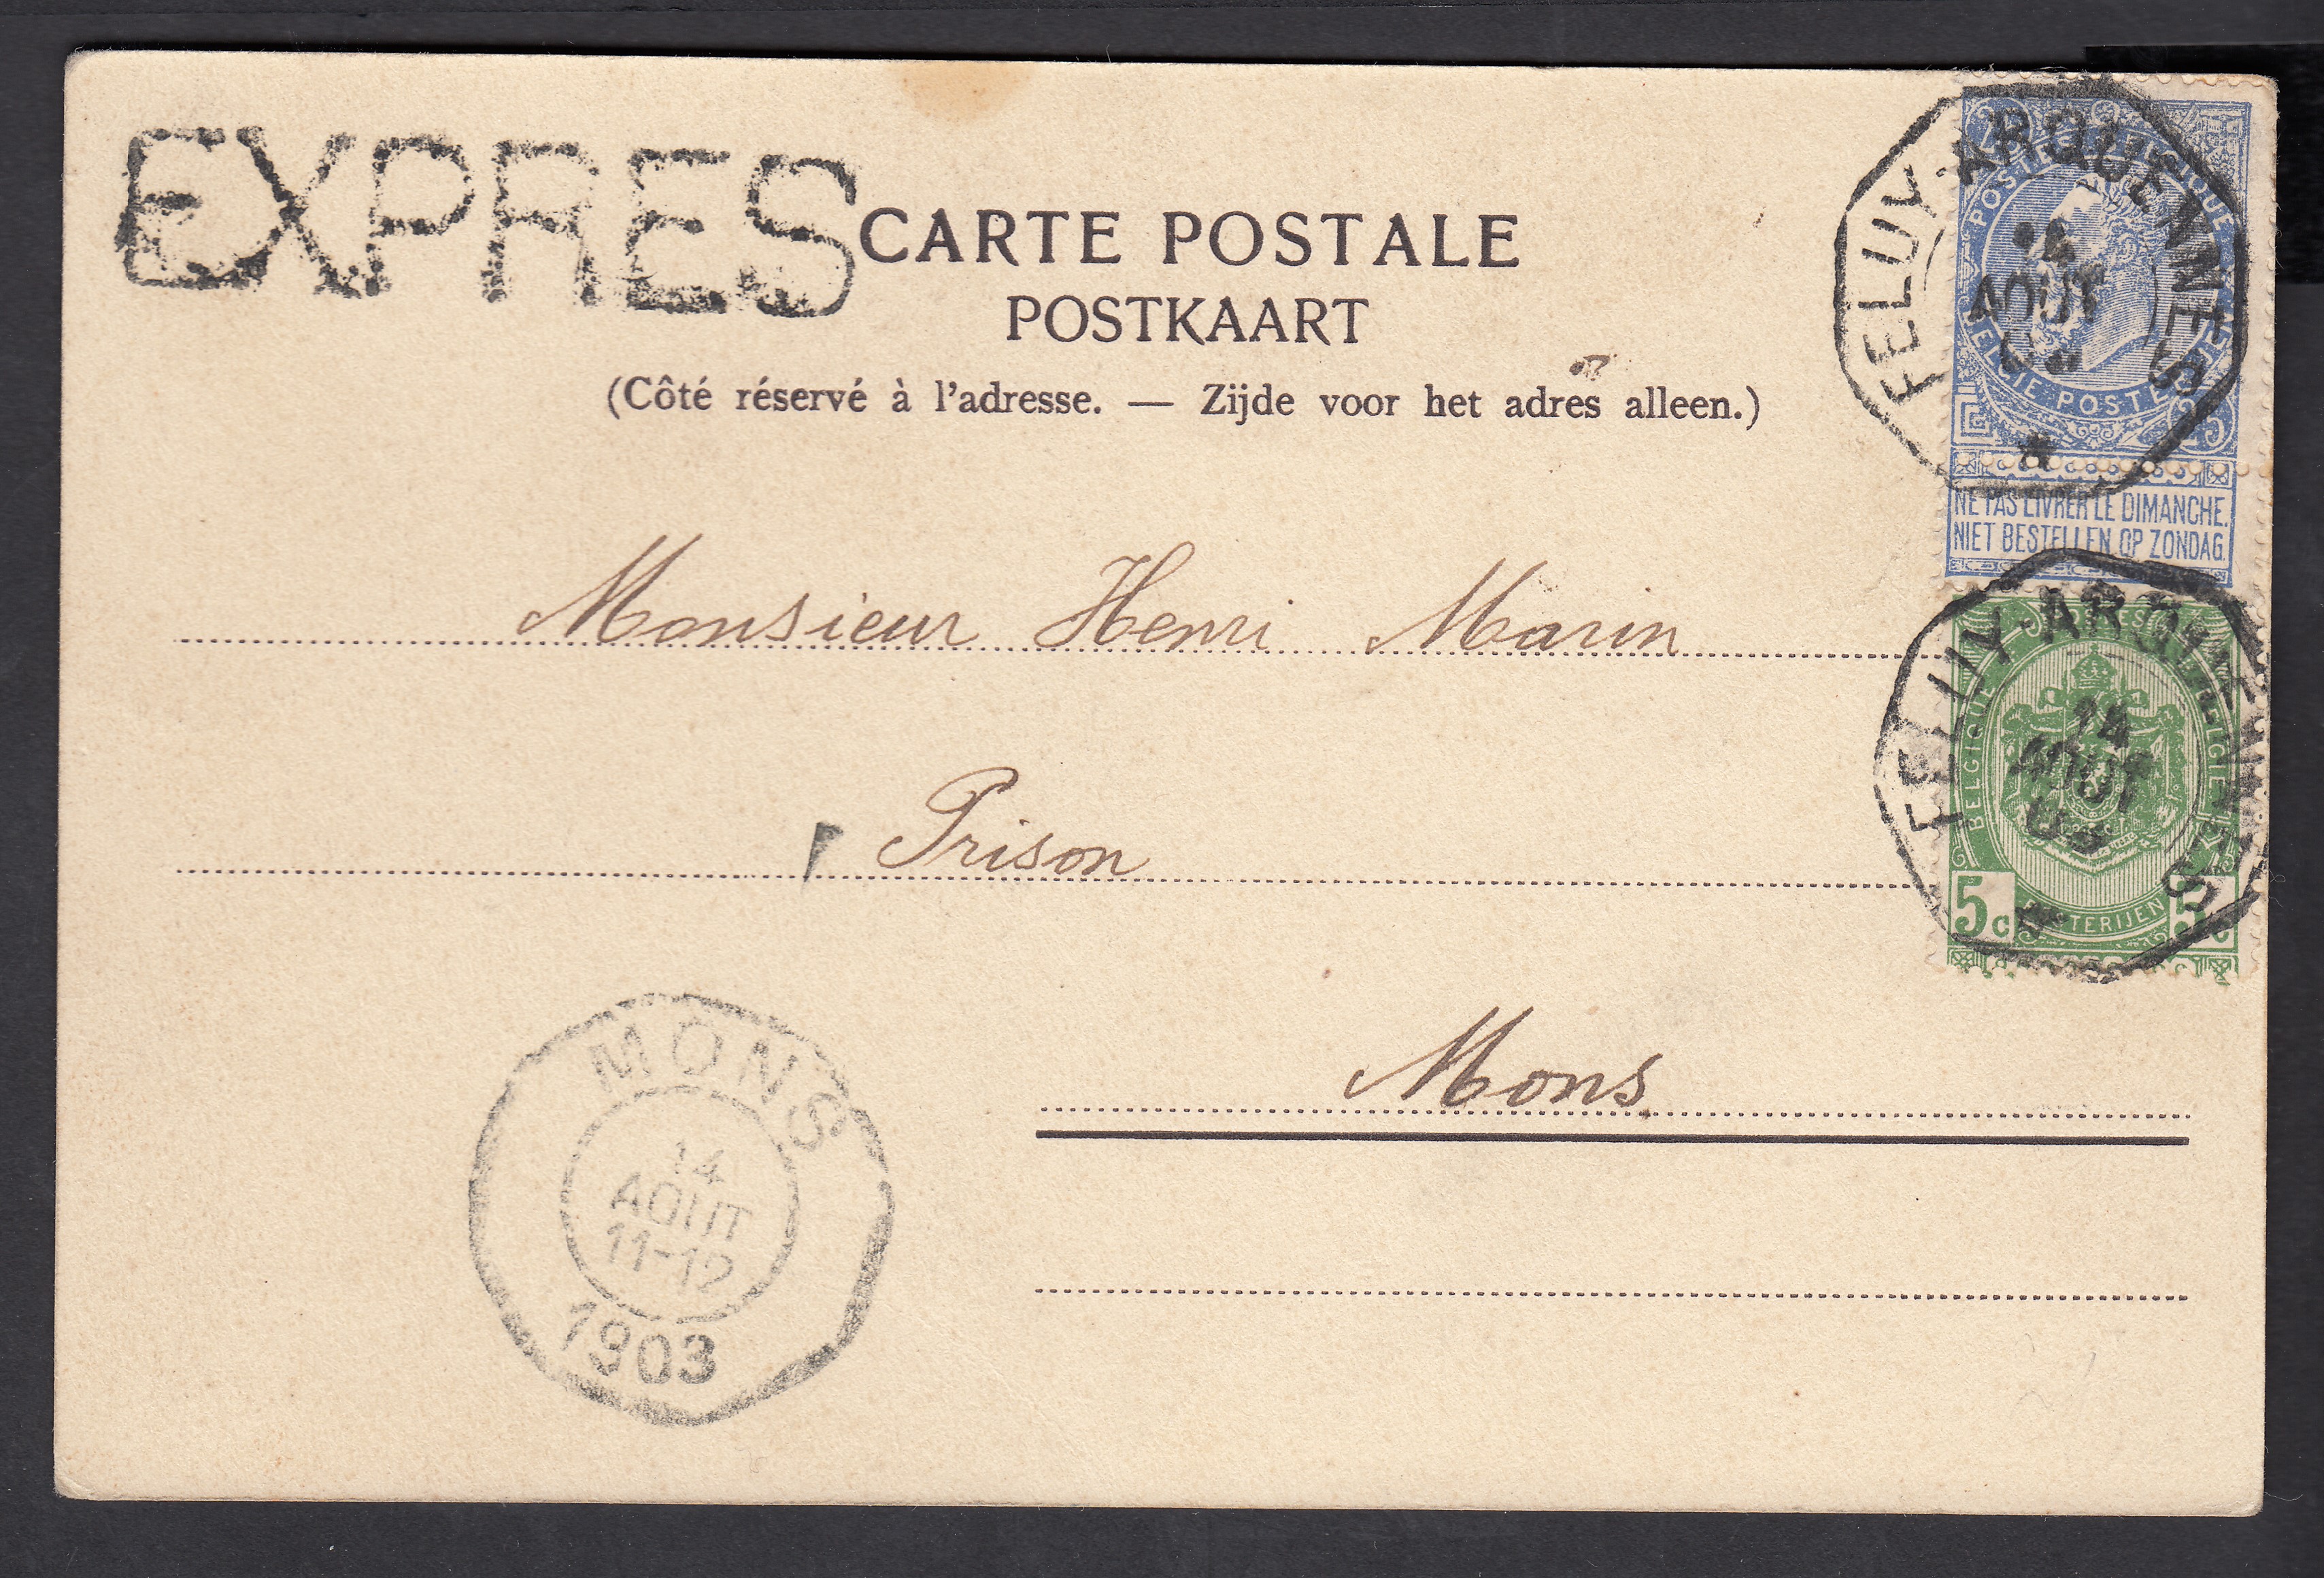 EXPRES
CARTE POSTALE
POSTKAART
(Côté réservé à l'adresse. — Zijde voor het adres alleen.)
FELUY-ARQUENNES
14
AOUT
25
NE PAS LIVRER LE DIMANCHE.
NIET BESTELLEN OP ZONDAG.
Monsieur Henri Marin
FELUY-ARQUENNES
14
AOUT
03
BELGIQUE
5c
Prison
Mons
MONS
14
AOUT
11-12
1903